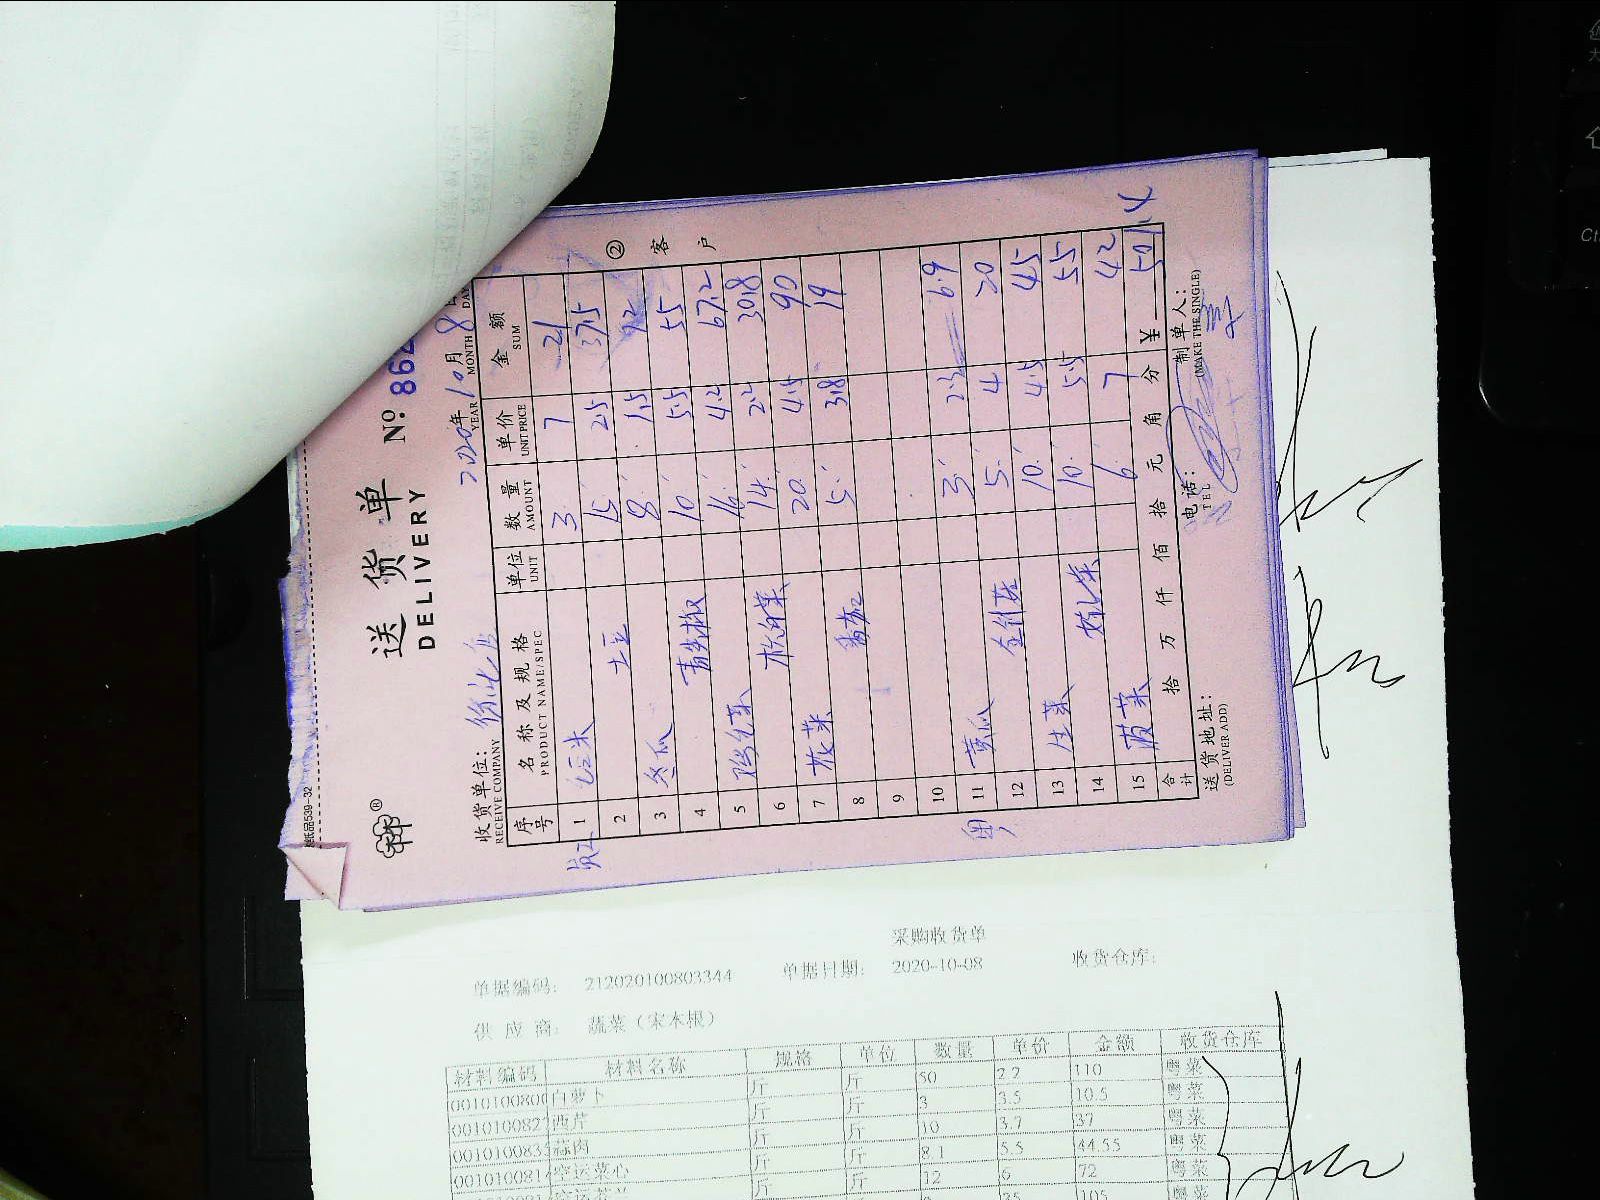 送货单 No: 862
DELIVERY
纸品539-32
收货单位: 2020年10月8
RECEIVE COMPANY YEAR MONTH DAY
序号 名称及规格 单位 数量 单价 金额
PRODUCT NAME/SPEC UNIT AMOUNT UNIT PRICE SUM
② 客户
1 3 7 21
2 土豆 15 2.5 37.5
3 冬瓜 8 1.5 12
4 青尖椒 10 5.5 55
5 16 4.2 67.2
6 14 2.2 30.8
7 花菜 20 4.5 90
8 番茄 5 3.8 19
9
10
11 黄瓜 3 2.3 6.9
12 5 4 20
13 生菜 10 4.5 45
14 10 5.5 55
15 菠菜 6 7 42
合计 拾 万 仟 佰 拾 元 角 分 ¥ 501.4
送货地址: 电话: 制单人:
(DELIVER ADD) TEL (MAKE THE SINGLE)
采购收货单
单据编码: 212020100803344 单据日期: 2020-10-08 收货仓库:
供应商: 蔬菜(宋本根)
材料编码 材料名称 规格 单位 数量 单价 金额 收货仓库
0010100800 白萝卜 斤 斤 50 2.2 110 粤菜
001010082 西芹 斤 斤 3 3.5 10.5 粤菜
001010083 蒜肉 斤 斤 10 3.7 37 粤菜
001010081 空运菜心 斤 斤 8.1 5.5 44.55 粤菜
斤 斤 12 6 72 粤菜
35 105 粤菜